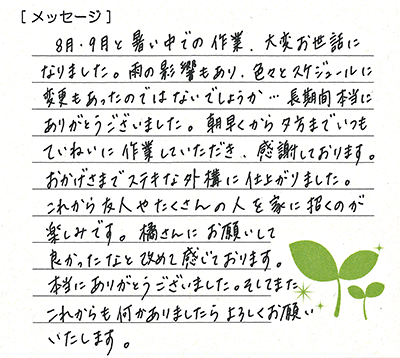 [メッセージ]
8月・9月と暑い中での作業、大変お世話に
なりました。雨の影響もあり、色々とスケジュールに
変更もあったのではないでしょうか…長期間本当に
ありがとうございました。朝早くから夕方までいつも
ていねいに作業していただき、感謝しております。
おかげさまでステキな外構に仕上がりました。
これから友人やたくさんの人を家に招くのが
楽しみです。橘さんにお願いして
良かったなと改めて感じております。
本当にありがとうございました。そしてまた
これからも何かありましたらよろしくお願い
いたします。